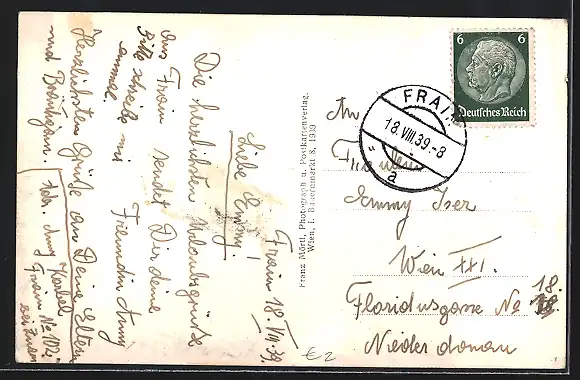 Frain 18. VIII 39.
Liebe Emmy!
Die herzlichsten Urlaubsgrüße
aus Frain sendet Dir deine
Freundin Anny
Bitte schreib mir
einmal.
Herzlichsten Grüße an Deine Eltern
und Bräutigam.
Adr. Anny Karbel
Frain No 102
bei Znaim
Franz Mörtl, Photograph u. Postkartenverlag.
Wien, I. Bauernmarkt 8, 1939
6 6
Deutsches Reich
FRAIN
18.VIII.39-8
a
An
Fräulein
Emmy Iser
Wien XXI.
Floridusgasse No 18.
Niederdonau
€2